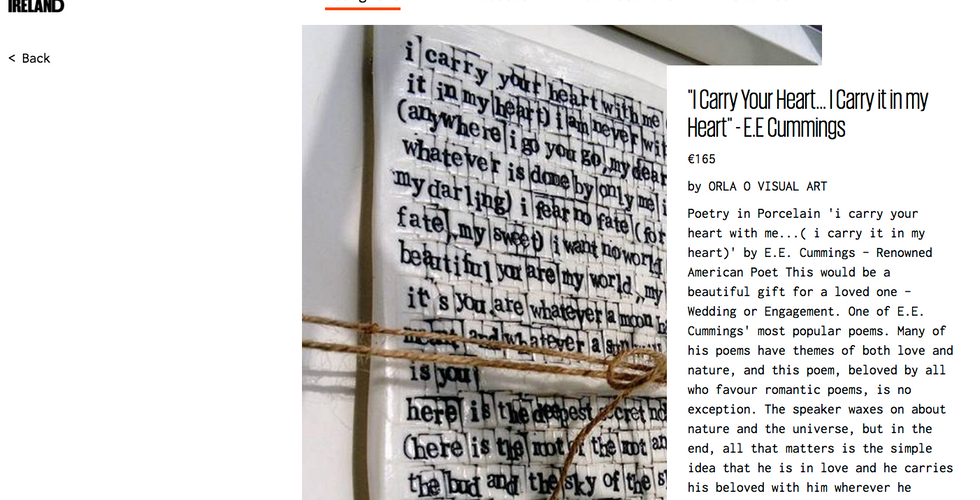 IRELAND
< Back
i carry your heart with me
it in my heart) i am never
(anywhere i go you go, my dear
whatever is done by only me
my darling) i fear no fate (for
fate), my sweet) i want no
beautiful you are my world, my
it's you are whatever a moon
meant and whatever a
is you
here is the deepest secret
(here is the root of the root
the bud and the sky of the
"I Carry Your Heart... I Carry it in my
Heart" - E.E Cummings
€165
by ORLA O VISUAL ART
Poetry in Porcelain 'i carry your
heart with me...( i carry it in my
heart)' by E.E. Cummings – Renowned
American Poet This would be a
beautiful gift for a loved one –
Wedding or Engagement. One of E.E.
Cummings' most popular poems. Many of
his poems have themes of both love and
nature, and this poem, beloved by all
who favour romantic poems, is no
exception. The speaker waxes on about
nature and the universe, but in the
end, all that matters is the simple
idea that he is in love and he carries
his beloved with him wherever he